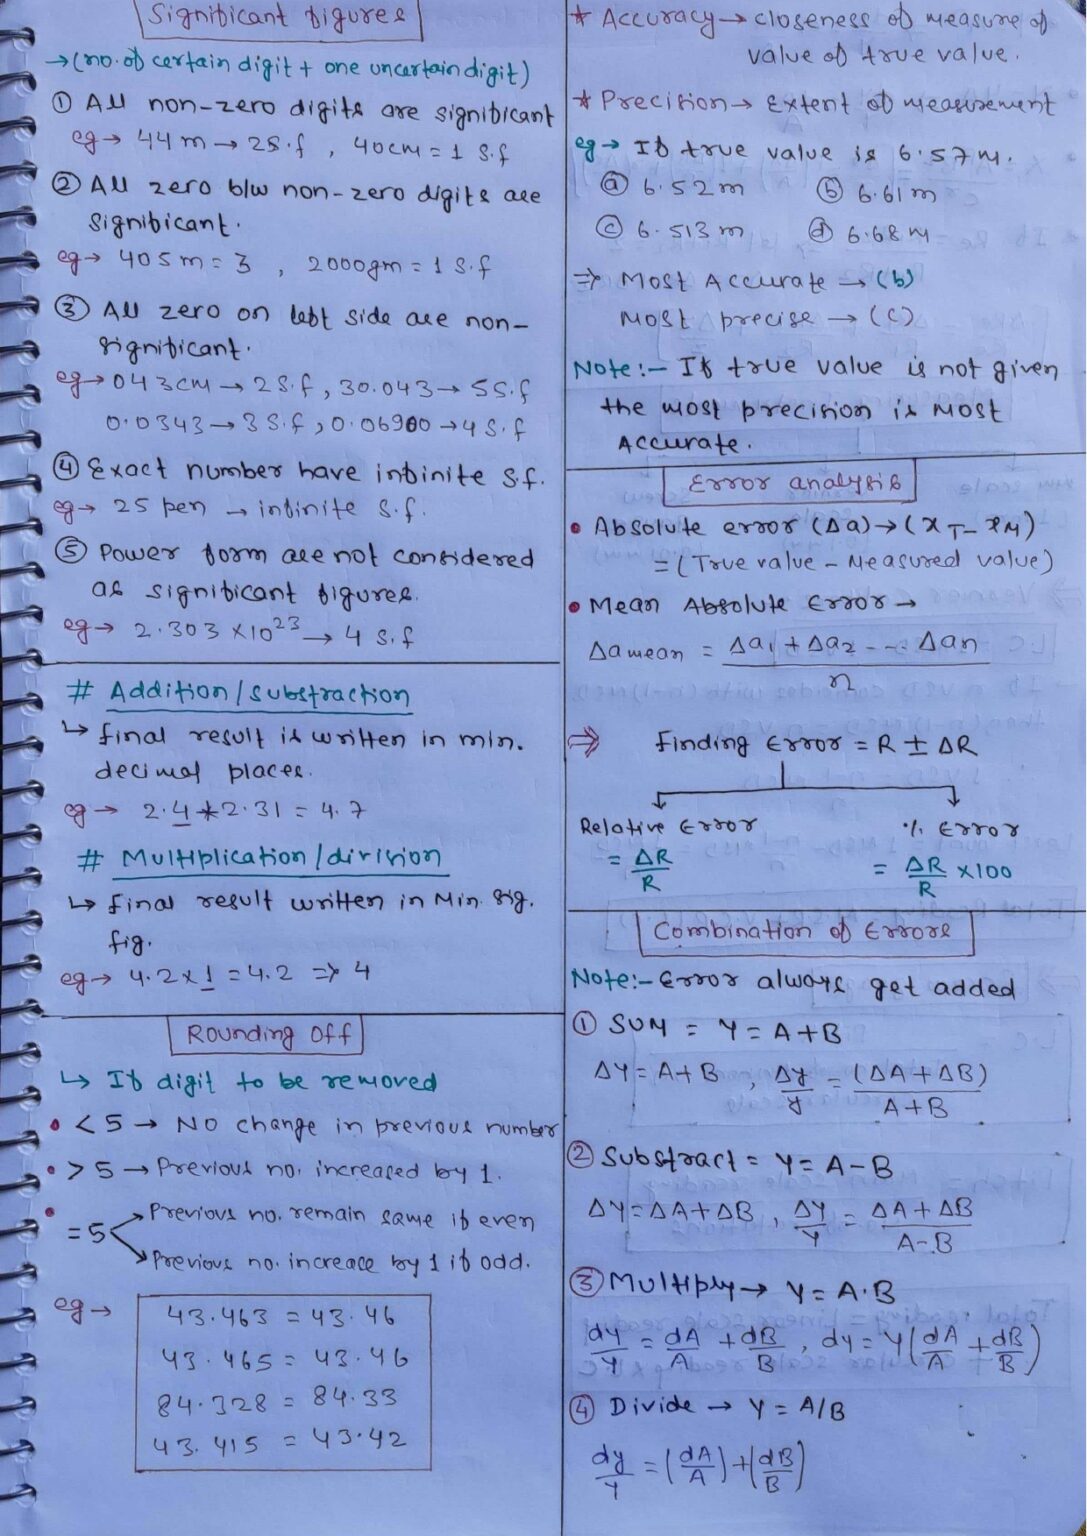 Significant figures
→ (no. of certain digit + one uncertain digit)
① All non-zero digits are significant
eg → 44 m → 2 S.f , 40cm = 1 S.f
② All zero b/w non-zero digits are
significant.
eg → 405m = 3 , 2000gm = 1 S.f
③ All zero on left side are non-
significant.
eg → 043cm → 2 S.f, 30.043 → 5 S.f
0.0343 → 3 S.f, 0.06900 → 4 S.f
④ Exact number have infinite S.f.
eg → 25 pen → infinite S.f.
⑤ Power form are not considered
as significant figures.
eg → 2.303 × 10²³ → 4 S.f
# Addition/Substraction
↳ final result is written in min.
decimal places.
eg → 2.4 + 2.31 = 4.7
# Multiplication/division
↳ final result written in Min. sig.
fig.
eg → 4.2 × 1 = 4.2 ⇒ 4
Rounding off
↳ If digit to be removed
• < 5 → No change in previous number
• > 5 → Previous no. increased by 1.
• = 5
Previous no. remain same if even
Previous no. increace by 1 if odd.
eg →
43.463 = 43.46
43.465 = 43.46
84.328 = 84.33
43.415 = 43.42
* Accuracy → closeness of measure of
value of true value.
* Precision → Extent of measurement
eg → If true value is 6.57 m.
ⓐ 6.52 m ⓑ 6.61 m
ⓒ 6.513 m ⓓ 6.68 m
⇒ Most Accurate → (b)
Most precise → (c)
Note:- If true value is not given
the most precision is Most
Accurate.
Error analysis
• Absolute error (Δa) → (x_T - x_M)
= (True value - Measured value)
• Mean Absolute Error →
Δa mean = Δa₁ + Δa₂ --- Δan
n
⇒ Finding Error = R ± ΔR
Relative Error % Error
= ΔR/R = ΔR/R × 100
Combination of Errors
Note:- Error always get added
① SUM = Y = A + B
ΔY = A + B , Δy/y = (ΔA + ΔB)/A + B
② Substract = Y = A - B
ΔY = ΔA + ΔB , ΔY/Y = ΔA + ΔB/A - B
③ Multiply → Y = A.B
dy/Y = dA/A + dB/B , dy = Y(dA/A + dB/B)
④ Divide → Y = A/B
dy/Y = (dA/A) + (dB/B)